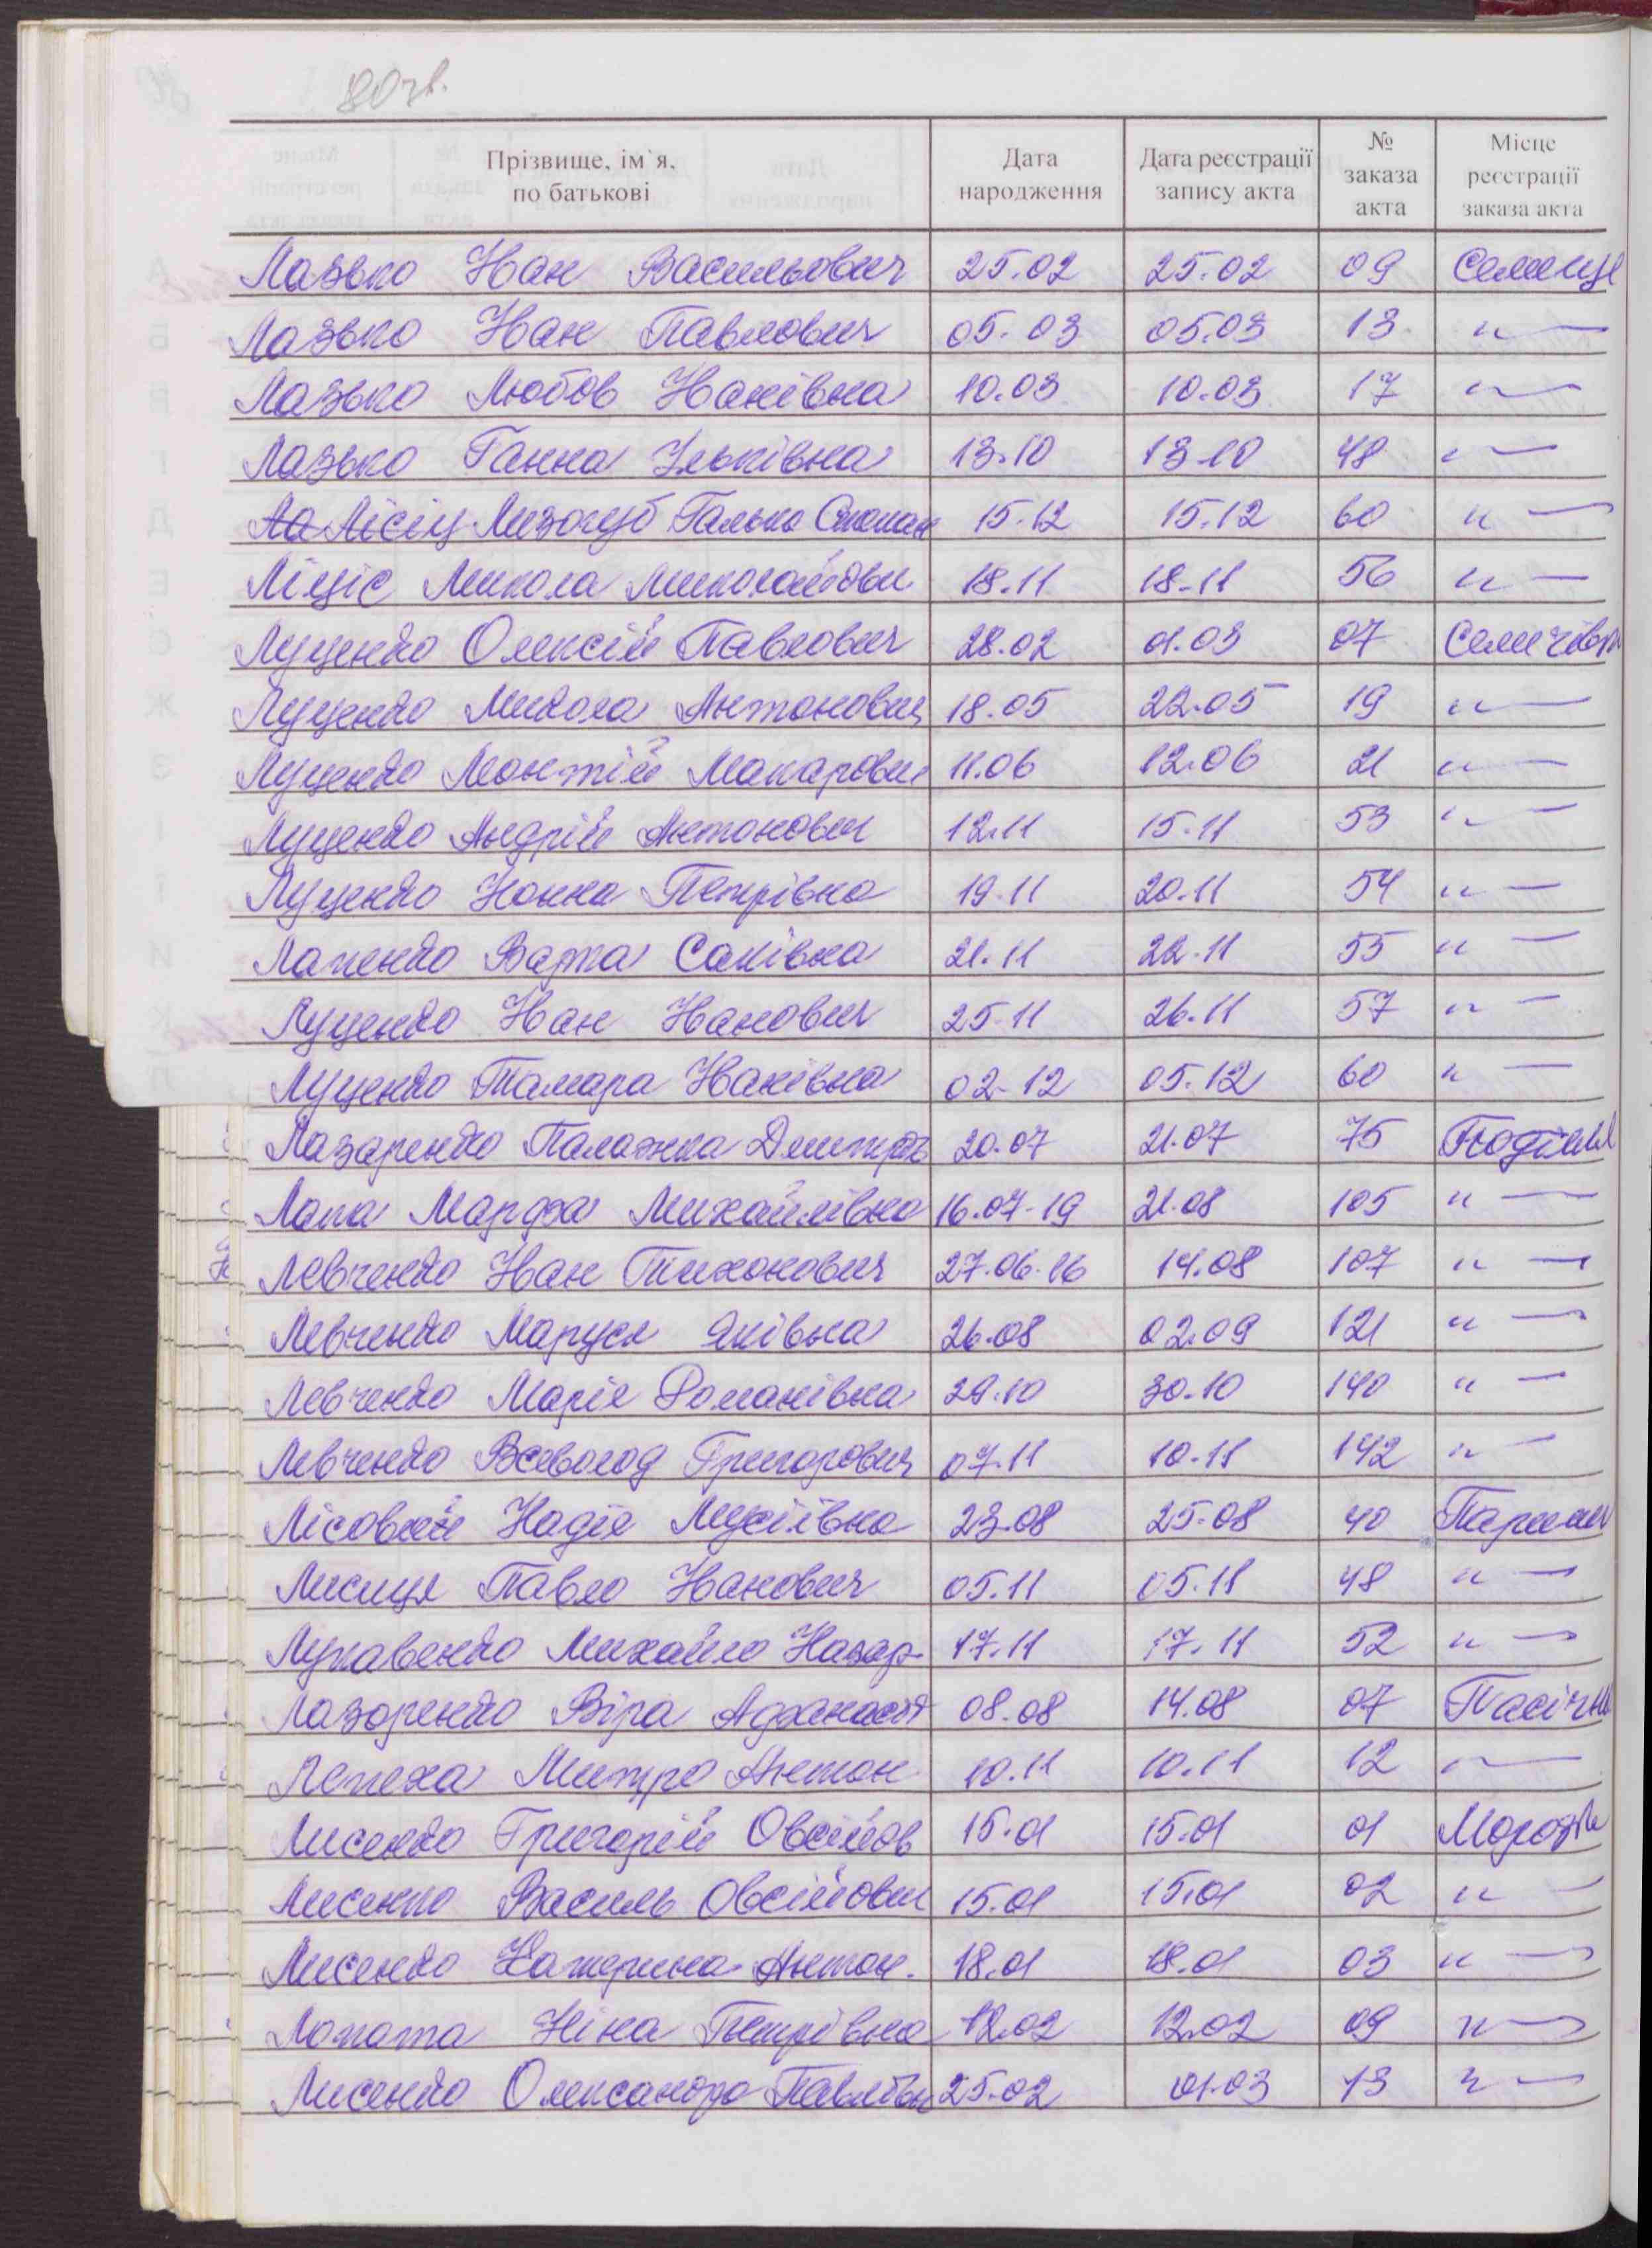 80 зв.
Прізвище, ім`я, по батькові | Дата народження | Дата реєстрації запису акта | № заказа акта | Місце реєстрації заказа акта
Лазько Іван Васильович 25.02 25.02 09 Семенце
Лазько Іван Павлович 05.03 05.03 13 "—
Лазько Любов Іванівна 10.03 10.03 17 "—
Лазько Ганна Ільківна 13.10 13.10 48 "—
Лізогуб Галько Степан 15.12 15.12 60 "—
Ліціс Микола Миколайови 18.11 18.11 56 "—
Луценко Олексій Павлович 28.02 01.03 07 Семенівка
Луценко Микола Антонович 18.05 22.05 19 "—
Луценко Монтій Макарович 11.06 12.06 21 "—
Луценко Андрій Антонович 12.11 15.11 53 "—
Луценко Нонна Петрівна 19.11 20.11 54 "—
Лапенко Варта Саківна 21.11 22.11 55 "—
Луценко Іван Іванович 25.11 26.11 57 "—
Луценко Тамара Іванівна 02.12 05.12 60 "—
Лазаренко Палажка Дмитрів 20.07 21.07 75
Лапа Марфа Михайлівна 16.07.19 21.08 105 "—
Левченко Іван Тихонович 27.06.16 14.08 107 "—
Левченко Маруся Яківна 26.08 02.09 121 "—
Левченко Марія Романівна 29.10 30.10 140 "—
Левченко Всеволод Григорович 07.11 10.11 142 "—
Лісовий Надія Мусіївна 23.08 25.08 40
Лисиця Павло Іванович 05.11 05.11 48 "—
Лукавенко Михайло Назар. 17.11 17.11 52 "—
Лазоренко Віра Афанасів 08.08 14.08 07 Пасічн
Лепеха Митро Антон 10.11 10.11 12 "—
Лисенко Григорій Овсійов 15.01 15.01 01
Лисенко Василь Овсійови 15.01 15.01 02 "—
Лисенко Катерина Антон. 18.01 18.01 03 "—
Лопата Ніна Петрівна 12.02 12.02 09 "—
Лисенко Олександр Павлови 25.02 01.03 13 "—